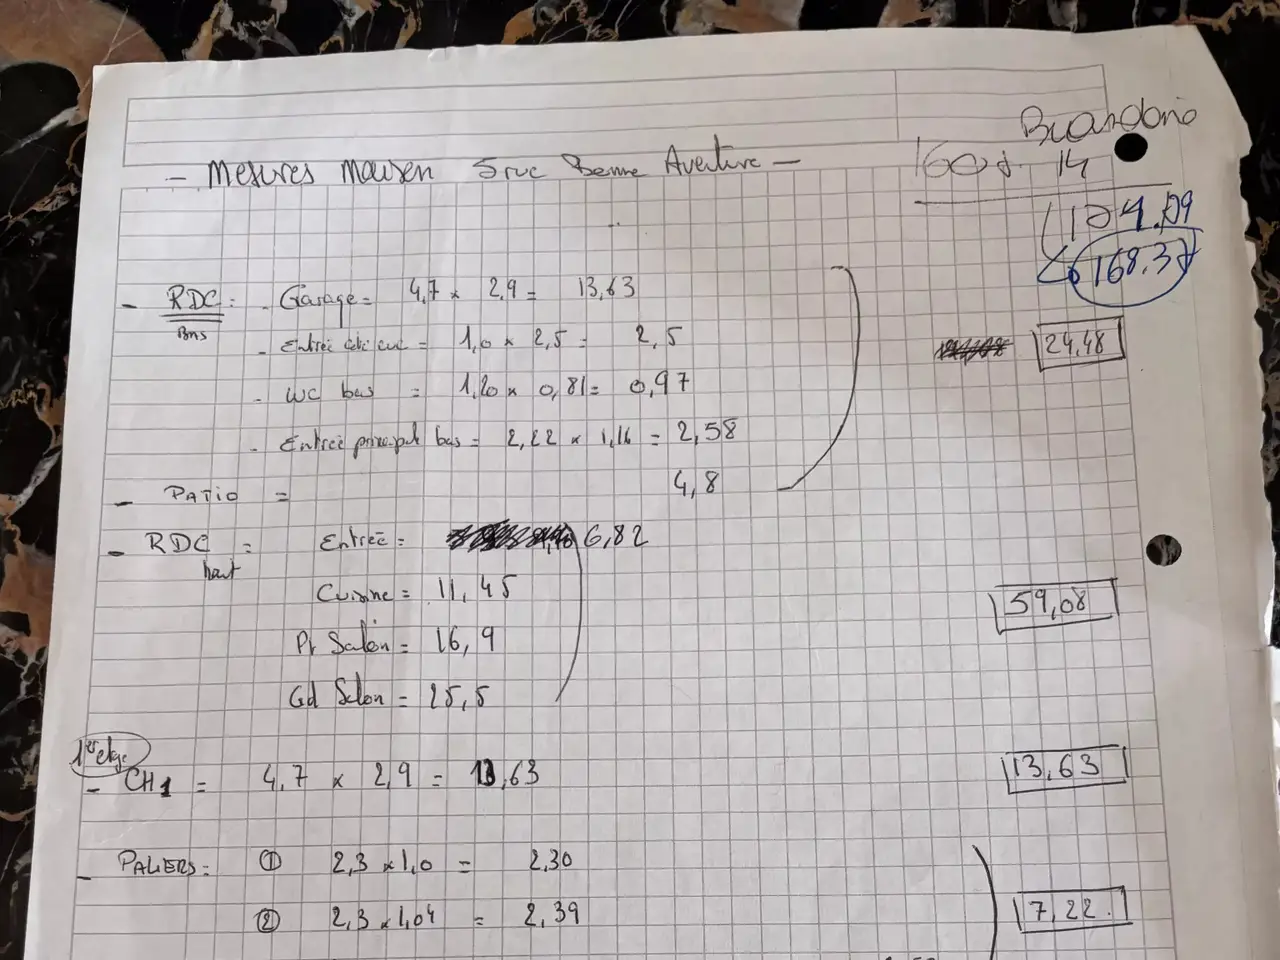 - Mesures Maison 5 rue Bonne Aventure -
14
168.37
- RDC: - Garage = 4,7 x 2,9 = 13,63
Bas
- Entrée = 1,0 x 2,5 = 2,5
24,48
- WC bas = 1,20 x 0,81 = 0,97
- Entrée principale bas = 2,22 x 1,16 = 2,58
- PATIO = 4,8
- RDC = Entrée = 6,82
haut
Cuisine = 11,45
59,08
Pt Salon = 16,9
Gd Salon = 25,5
1er etage
- CH1 = 4,7 x 2,9 = 13,63
13,63
- PALIERS: ① 2,3 x 1,0 = 2,30
② 2,3 x 1,04 = 2,39
7,22